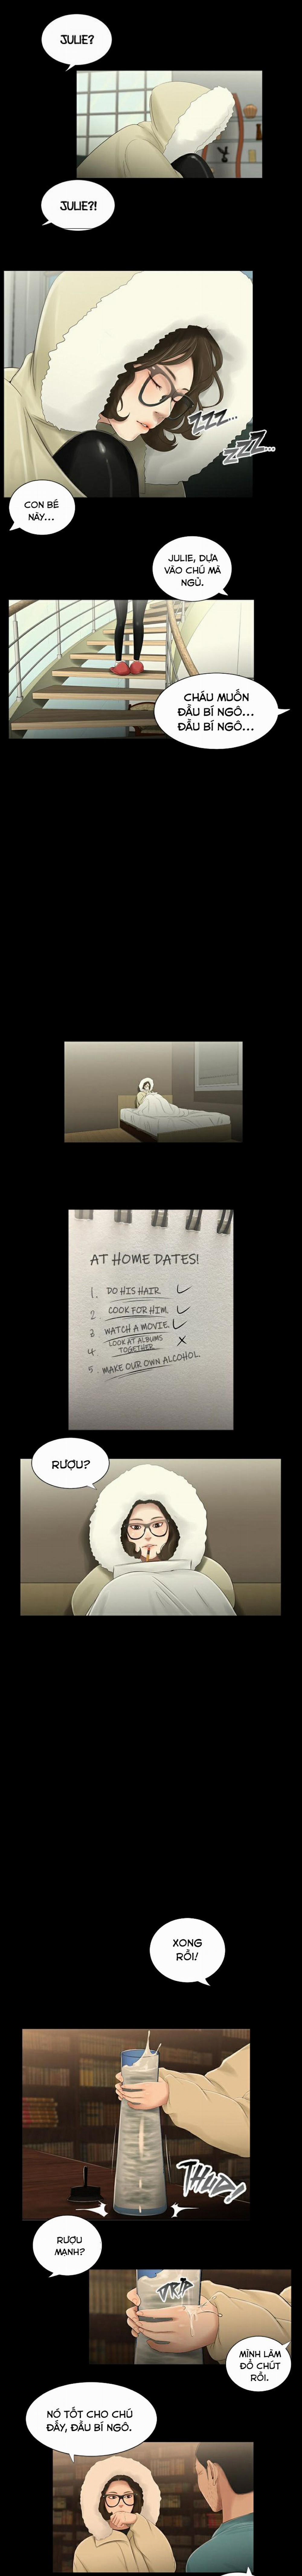 JULIE?
JULIE?!
ZZZ...
ZZZ...
CON BÉ
NÀY...
JULIE, DỰA
VÀO CHÚ MÀ
NGỦ.
CHÁU MUỐN
ĐẦU BÍ NGÔ...
ĐẦU BÍ NGÔ...
AT HOME DATES!
1. DO HIS HAIR.
2 COOK FOR HIM.
3 WATCH A MOVIE.
4 LOOK AT ALBUMS
TOGETHER
5. MAKE OUR OWN ALCOHOL.
RƯỢU?
XONG
RỒI!
THUD!
RƯỢU
MẠNH?
DRIP
MÌNH LÀM
ĐỔ CHÚT
RỒI.
NÓ TỐT CHO CHÚ
ĐẤY, ĐẦU BÍ NGÔ.